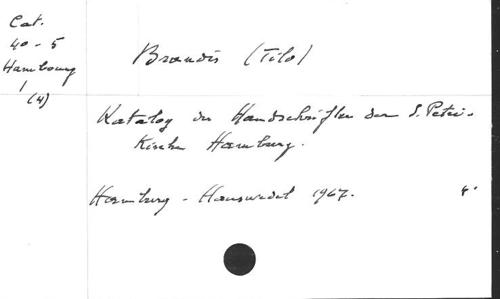 Cat.
40-5
Hambourg
/
(4)
Brandis (Tilo)
Katalog der Handschriften der S. Petri-
Kirche Hamburg.
Hamburg - Hauswedell 1967. 4°